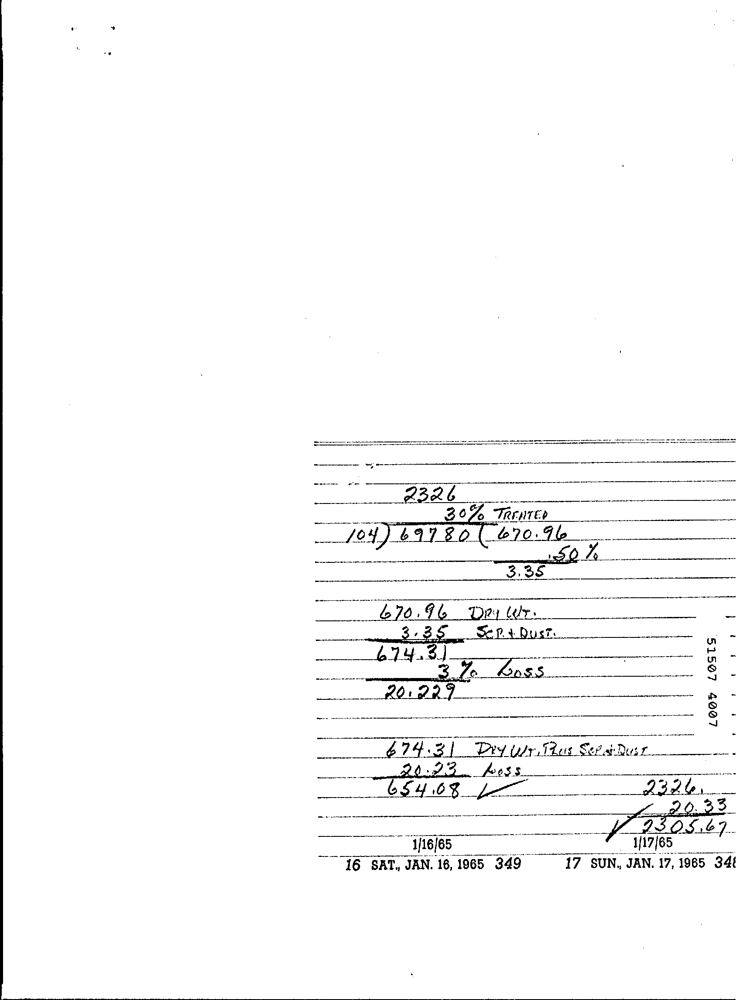 2326
30% TREATED
104) 69780 ( 670.96
.50 %
3.35
670.96 DRY WT.
3.35 SCP. + DUST.
674.31
3 % LOSS
20.229
674.31 DRY WT. PLUS SCP. + DUST
20.23 LOSS
654.08 ✓
2326.
20.33
✓ 2305.67
1/16/65 1/17/65
16 SAT., JAN. 16, 1965 349 17 SUN., JAN. 17, 1965 348
51507 4007